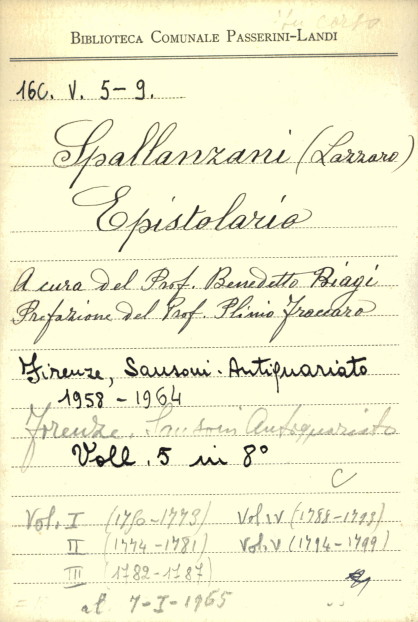 In corso
BIBLIOTECA COMUNALE PASSERINI-LANDI
16C. V. 5-9.
Spallanzani (Lazzaro)
Epistolario
A cura del Prof. Benedetto Biagi
Prefazione del Prof. Plinio Fraccaro
Firenze, Sansoni-Antiquariato
1958-1964
Firenze. Sansoni Antiquariato
Voll. 5 in 8°
C
Vol. I (1750-1773) Vol. IV (1788-1793)
II (1774-1781) Vol. V (1794-1799)
III (1782-1787)
al 7-I-1965